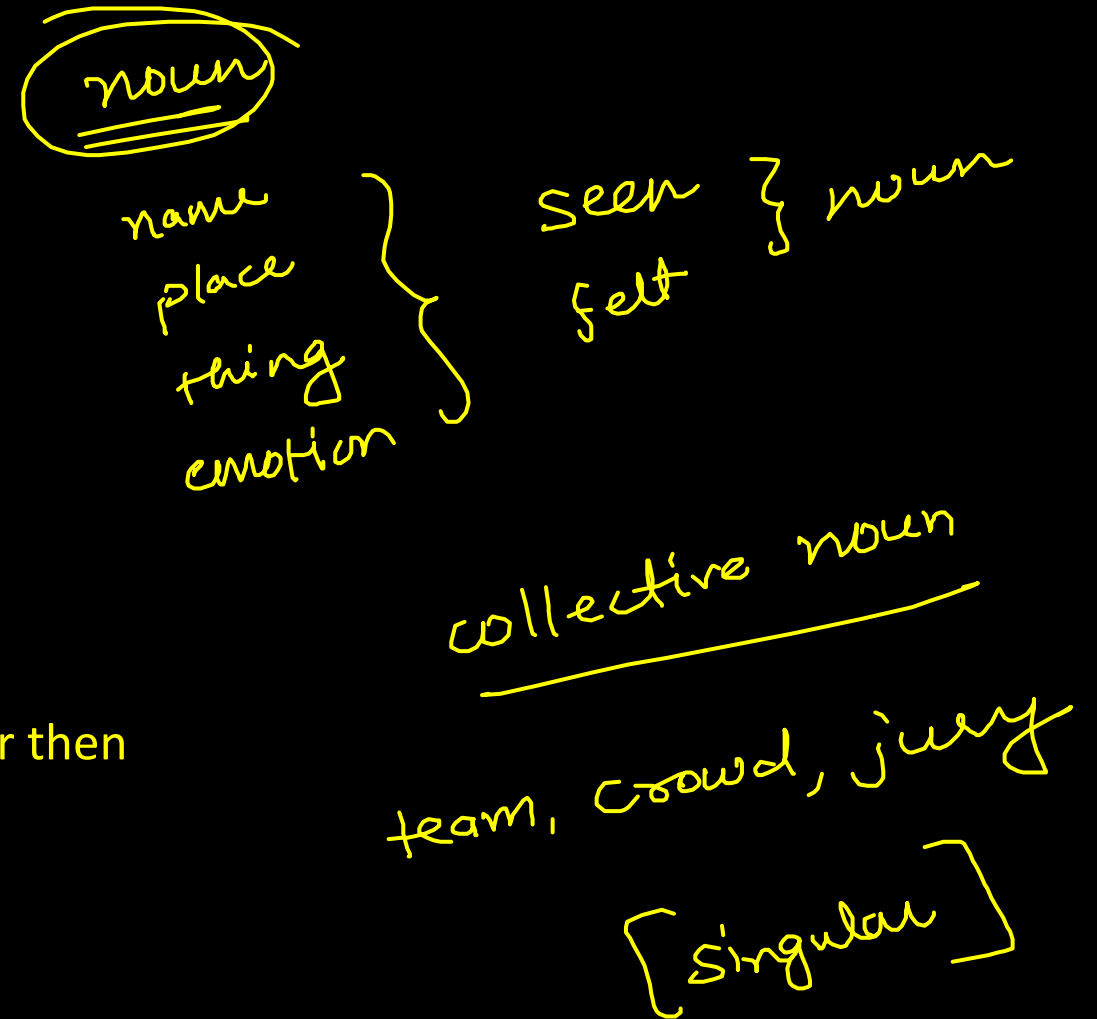 noun
name
place
thing
emotion
seen } noun
felt
collective noun
r then
team, crowd, jury
[singular]